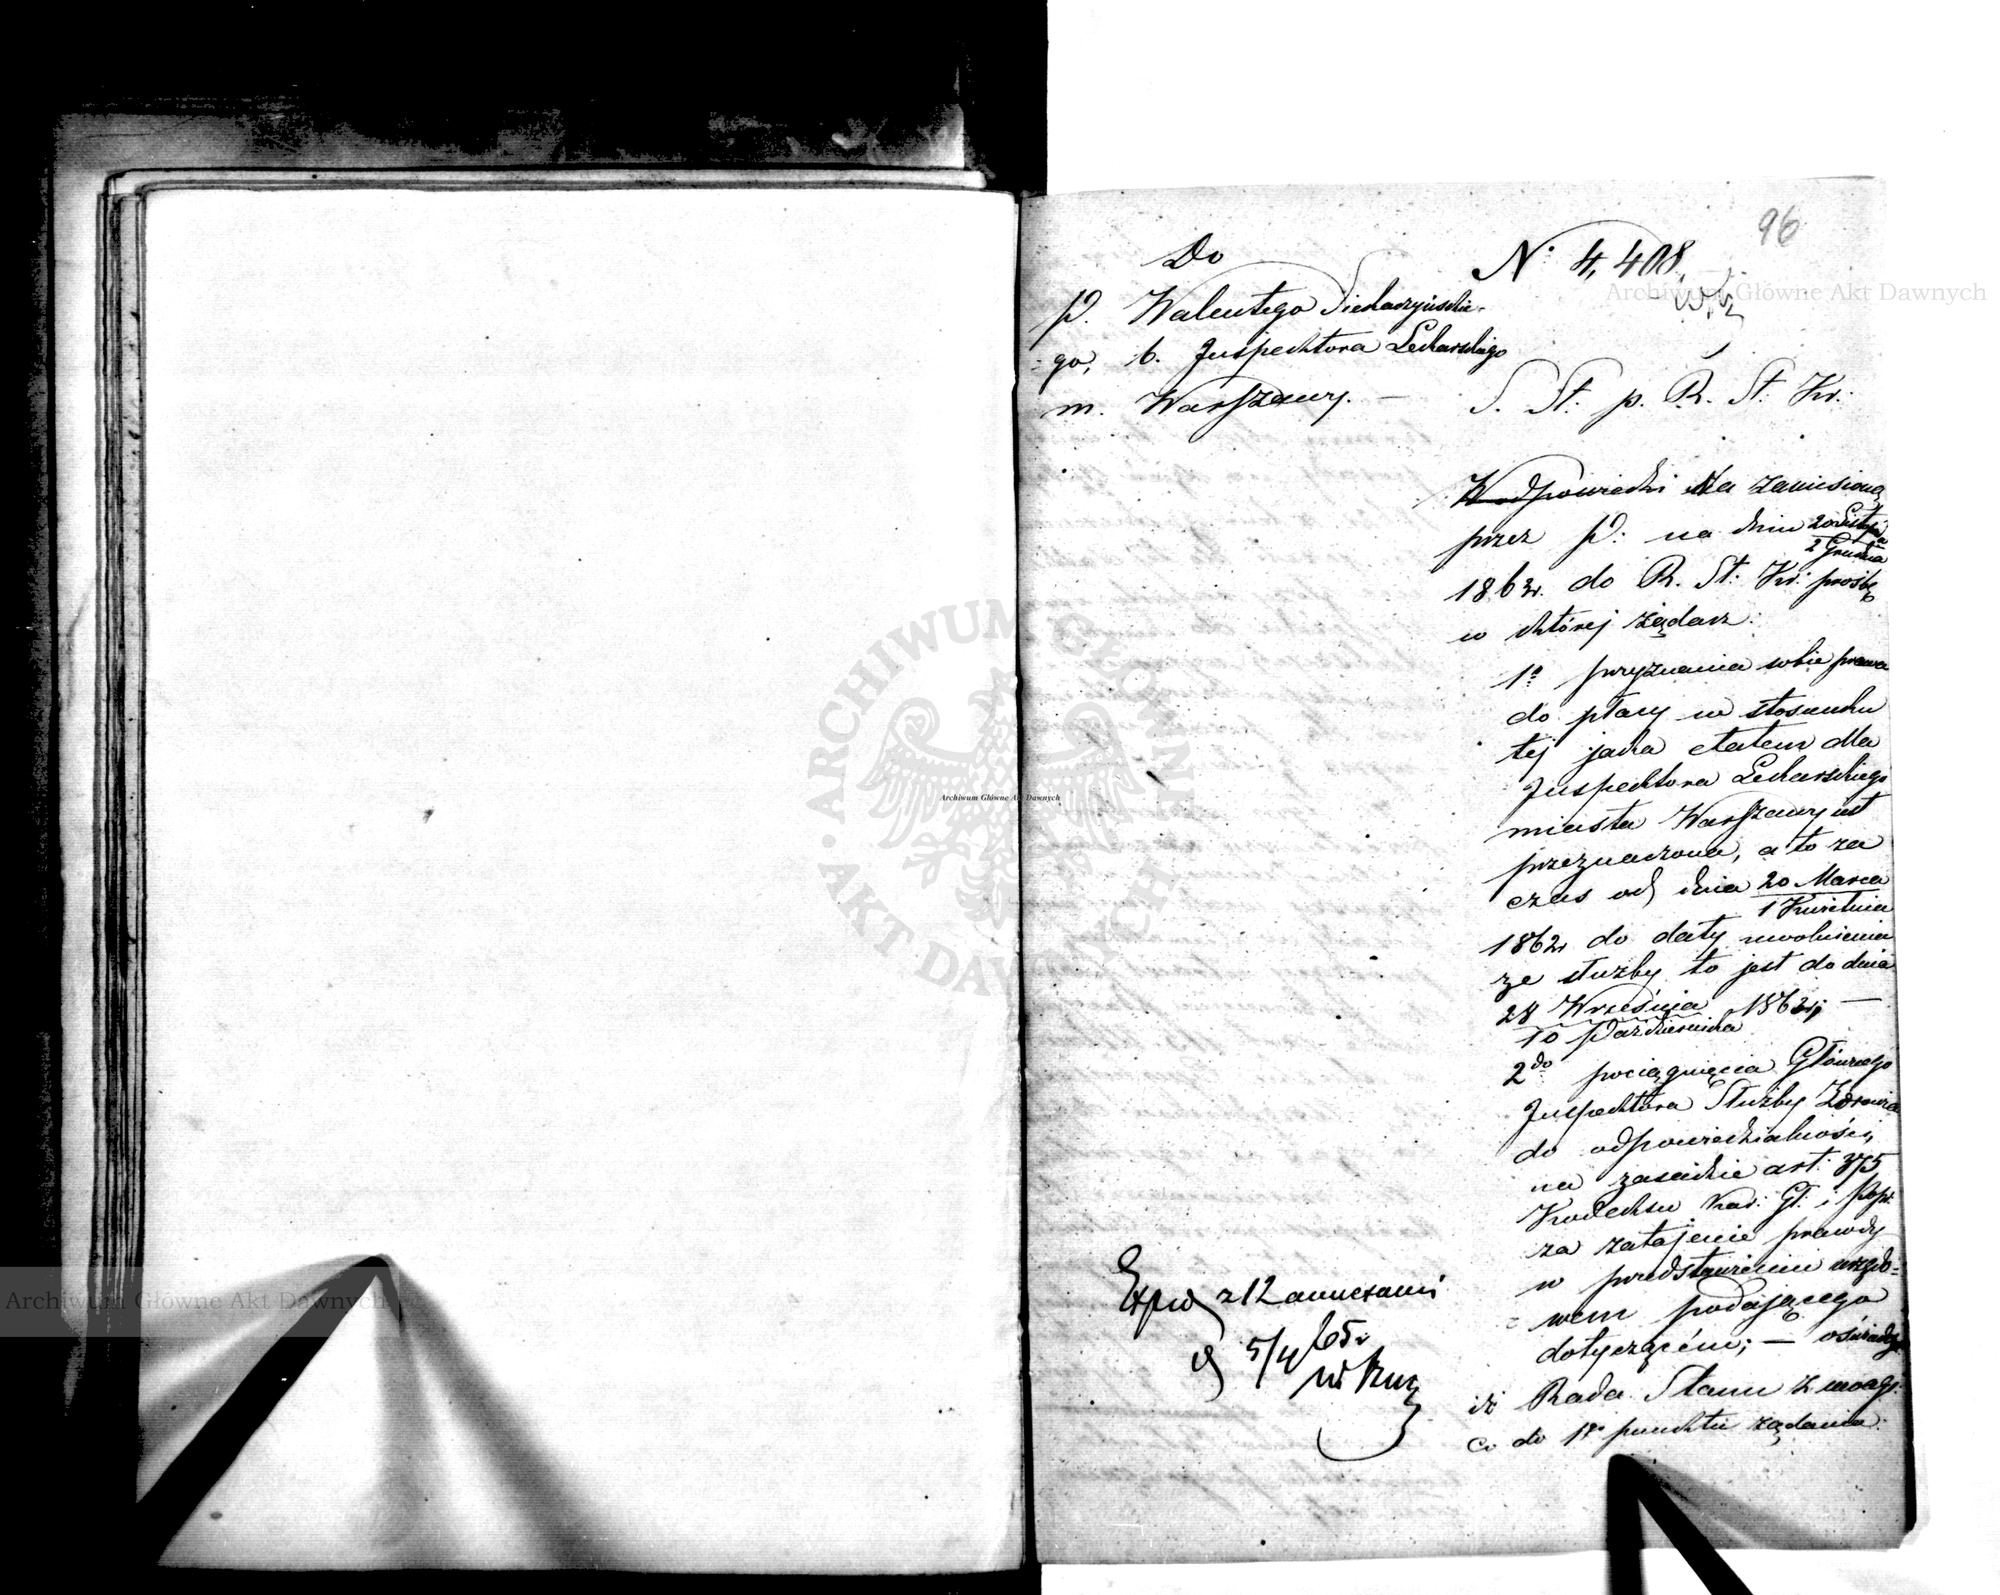 96
Do
P. Walentego
go, b. Inspektora Lekarskiego
m. Warszawy. —
N° 4,408
S. St. p. R. St. Kr.
W odpowiedzi Na zaniesioną
przez P. na dniu 20 Listop. / 2 Grudnia
186 r. do R. St. Kr. prośbę
w której żądasz:
1° przyznania sobie prawa
do płacy w stosunku
tej jaka etatem dla
Inspektora Lekarskiego
miasta Warszawy jest
przeznaczona, a to za
czas od dnia 20 Marca / 1 Kwietnia
1862 r. do daty uwolnienia
ze służby to jest do dnia
28 Września / 10 Października 186 r; —
2do pociągnięcia Głównego
Inspektora Służby Zdrowia
do odpowiedzialności,
na zasadzie art. 375,
Kodeksu Kar. Gł. i Popr.
za zatajenie prawdy
w przedstawieniu urzędo=
wem podającego
dotyczącem; — oświadcza
iż Rada Stanu zważy:
Co do 1go punktu żądania:
Exped z 12 annexami
d 5/4 65 r
Archiwum Główne Akt Dawnych
Archiwum Główne Akt Dawnych
Archiwum Główne Akt Dawnych
ARCHIWUM GŁÓWNE AKT DAWNYCH